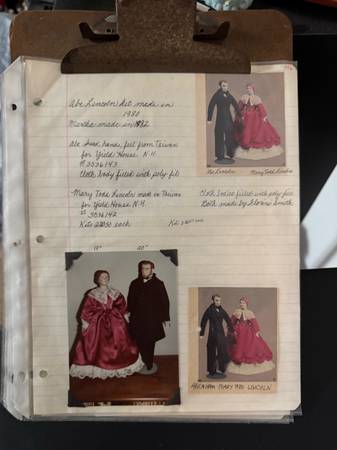 Abe Lincoln kit made in
1980
Martha made in 1982
Abe head, hands, feet from Taiwan
for Yield House N.H.
# 3036143
Cloth body filled with poly fil
Abe Lincoln
Mary Todd Lincoln
Mary Todd Lincoln made in Taiwan
for Yield House N.H.
# 3036142
Kits each
Cloth bodies filled with poly fil
Both made by Smith
Kit
18"
20"
ABRAHAM MARY TODD LINCOLN